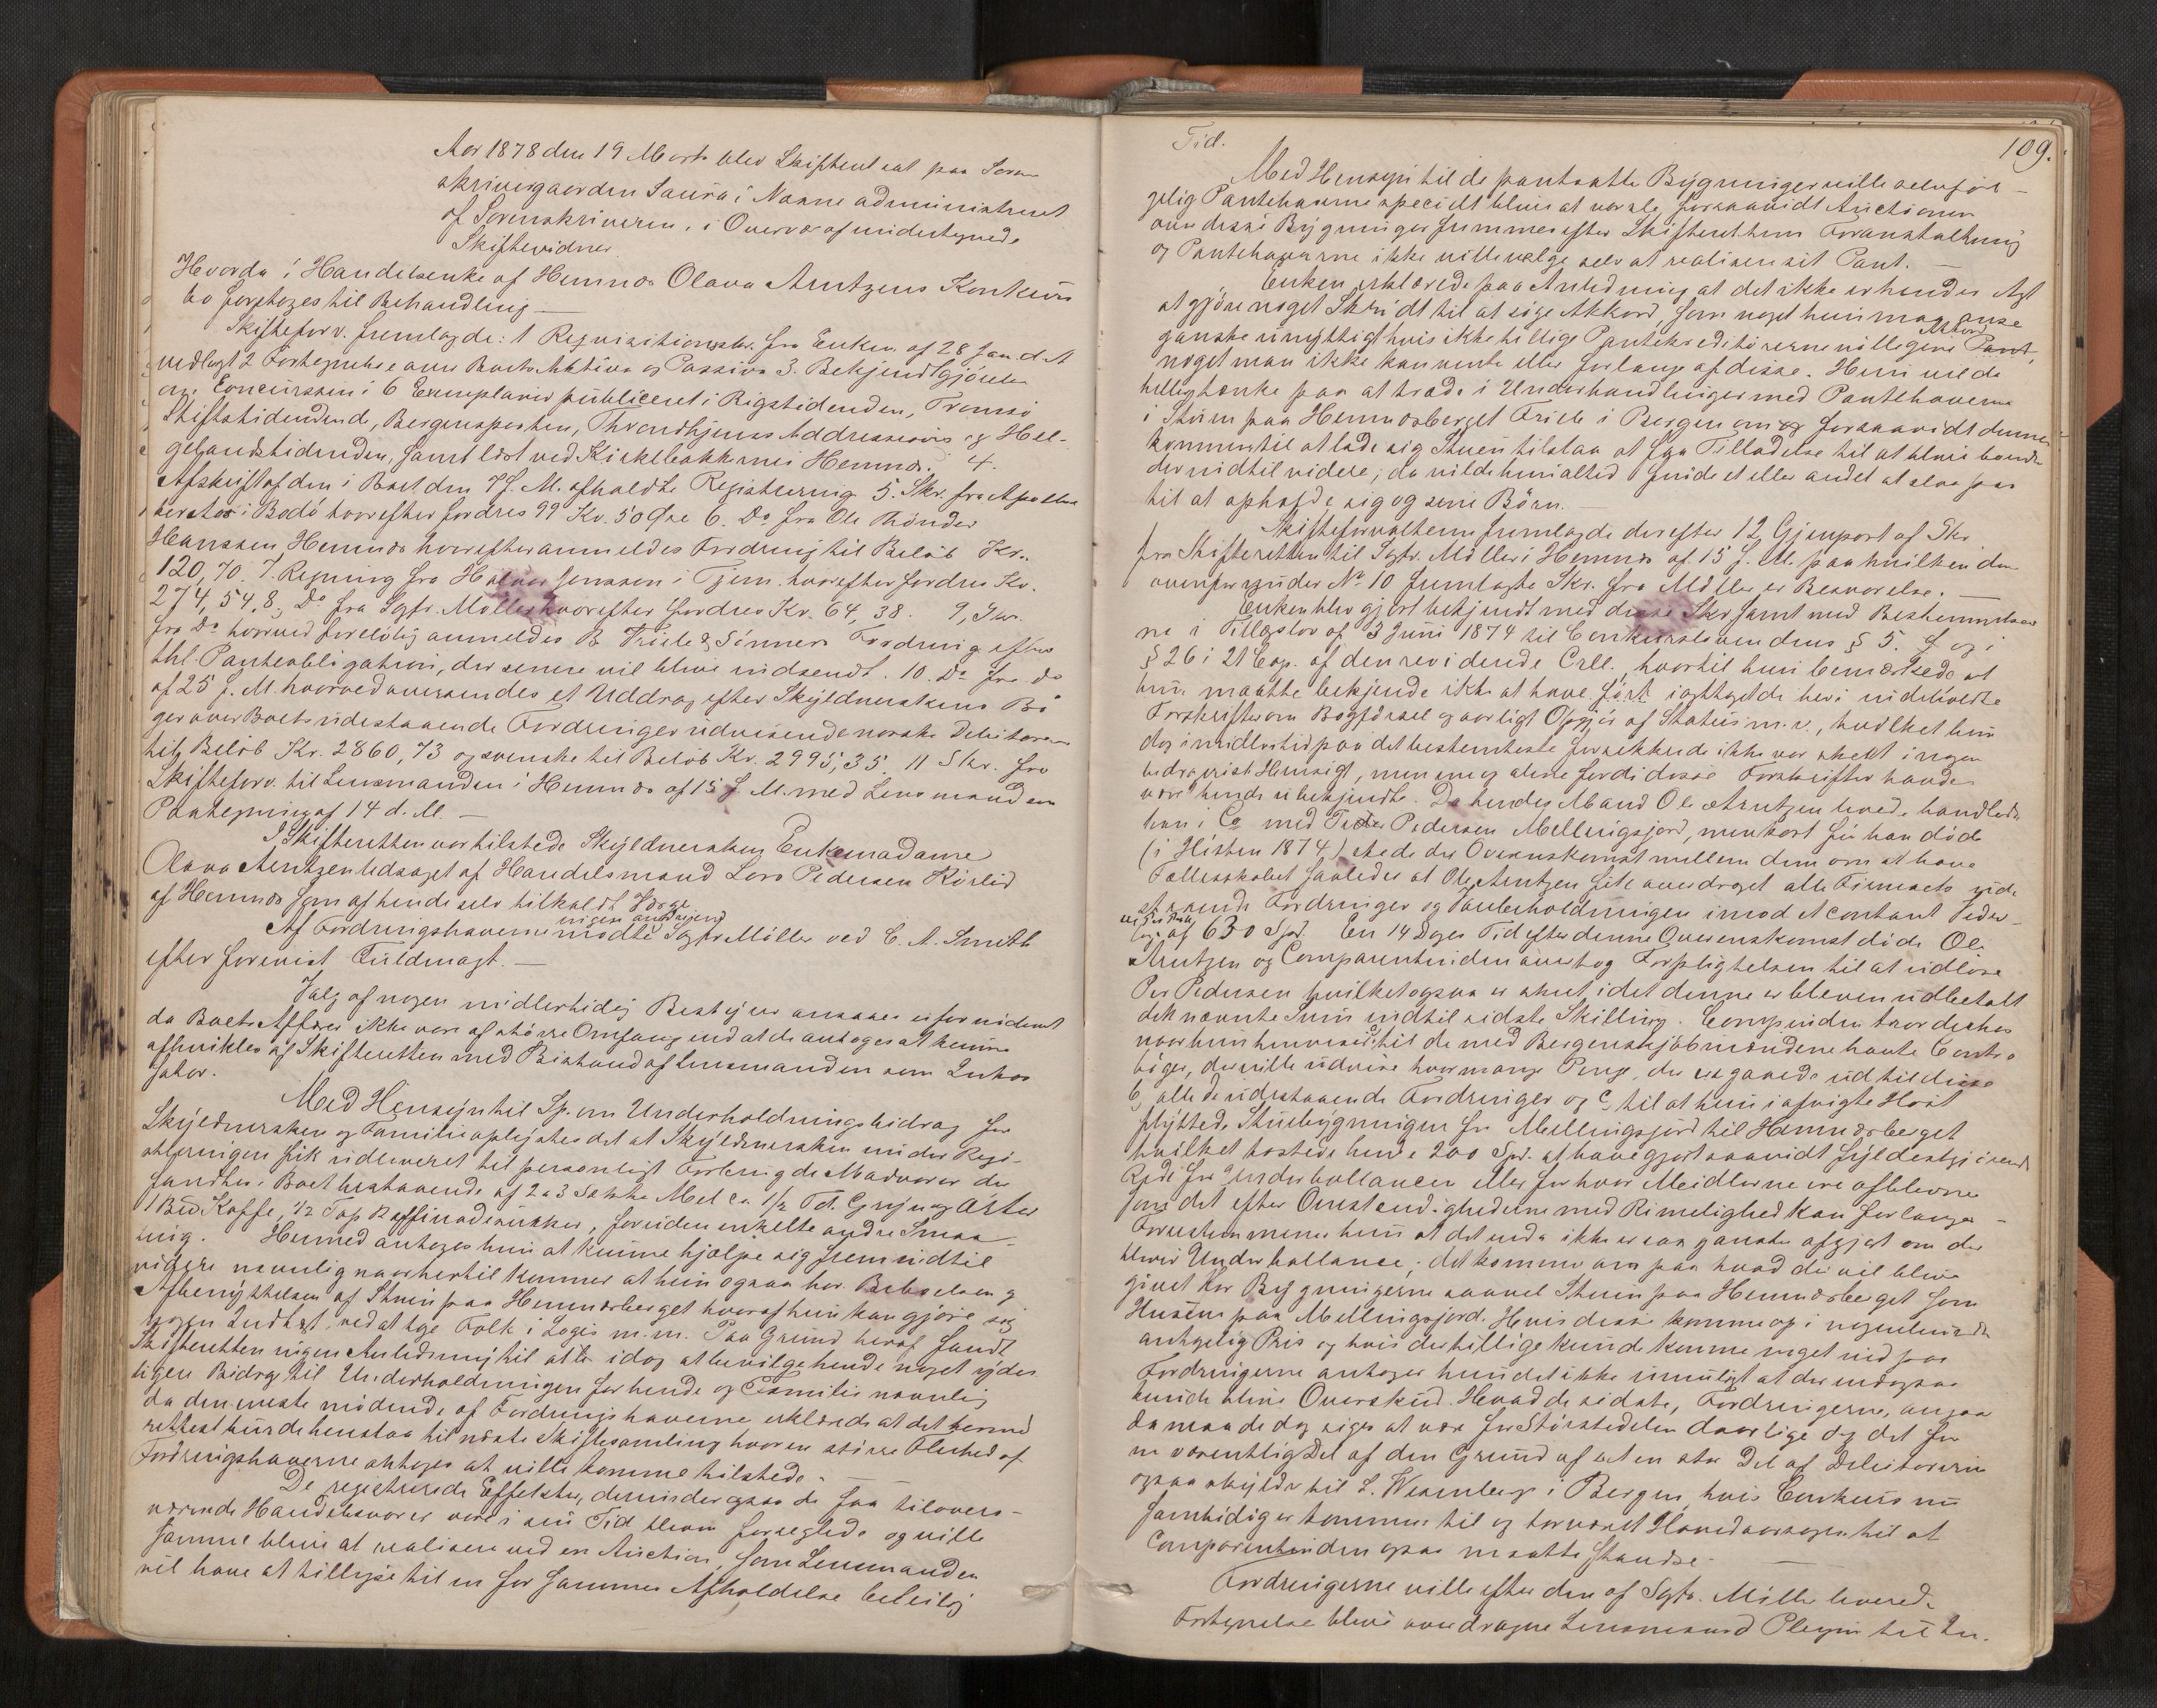 Aar 1878 den 19 Marts blev Skifteret sat paa Soren-
skrivergaarden Saura i Nesne administreret
af Sorenskriveren, i Overvær af undertegnede
Skiftevidner
Hvorda i Handelsenke af Hemnæs Olava Arntzens Konkurs
bo foretoges til Behandling —
Skifteforv. fremlagde: 1 Requisitionsskr. fra Enken af 28 Jan. d. A
vedlagt 2 Fortegnelse over Boets Aktiva og Passiva 3. Bekjendtgjörelse
om Concurssen i 6 Exemplarer publiceret i Rigstidenden, Tromsö
Stiftstidende, Bergensposten, Throndhjems Addresseavis og Hel-
gelandstidenden, samt læst ved Kirkebakken i Hemnæs. 4.
Afskrift af den i Boet den 7 f. M. afholdte Registrering 5. Skr. fra Apothe
ker i Bodö hvorefter fordres 99 Kr. 50 Øre 6. Do fra Ole Thönder
Hanssen, Hemnæs hvorefter anmeldes Fordring til Beløb Kr.
120,70. 7. Regning fra Halvor Jenssen i Tjern. hvorefter fordres Kr.
274,54. 8, Do fra Sgfr. Möller hvorefter fordres Kr. 64,38. 9, Skr.
fra Do hvorved foreløbig anmeldes B Friele & Sönners Fordring efter
thl. Panteobligation, der senere vil blive indsendt. 10. Do fra do
af 25 f. M. hvorved oversendes et Uddrag efter Skyldnerskens Bö
ger over Boets udestaaende Fordringer udvisende norske Debitorer
til Beløb Kr. 2860,73 og svenske til Beløb Kr. 2995,35. 11 Skr. fra
Skifteforv. til Lensmanden i Hemnæs af 15 f. M. med Lensmandens
Paategning af 14 d. M. —
I Skifteretten var tilstede Skyldnersken Enkemadame
Olava Arntzen ledsaget af Handelsmand Lars Pedersen Rörlid
af Hemnæs som af hende selv tilkaldt Værge
Af Fordringshaverne mødte ingen anden end Sgfr Möller ved C. A. Smith
efter forevist Fuldmagt. —
Valg af nogen midlertidig Bestyrer ansaaes ufornødent
da Boets Affærer ikke vare af større Omfang end at de antoges at kunne
afvikles af Skifteretten med Bistand af Lensmanden som Inkas
sator.
Med Hensyn til Sp. om Underholdningsbidrag for
Skyldnersken og Familie oplystes det at Skyldnersken under Regi-
streringen fik udleveret til personligt Forbrug de Madvarer der
fandtes i Boet bestaaende af 2 a 3 Sække Mel ca 1/2 Td. Gryn og Ärter
1 Bid Kaffe, 1/2 Top Raffinadesukker, foruden enkelte andre Smaa-
ting. Hermed antoges hun at kunne hjælpe sig frem indtil
videre navnlig naar hertil kommer at hun ogsaa har Beboelsen og
Afbenyttelsen af Stuen paa Hemnæsberget hvoraf hun kan gjøre sig
nogen Indtægt ved at tage Folk i Logis m. m. Paa Grund heraf fandt
Skifteretten ingen Anledning til at idag at bevilge hende noget yder
ligere Bidrag til Underholdningen for hende og Familie navnlig
da den eneste mødende af Fordringshaverne erklærede at det hermed
rettest burde henstaa til næste Skiftesamling hvor en større Flerhed af
Fordringshaverne antoges at ville komme tilstede. —
De registrerede Effekter, derunder ogsaa de faa tilovers-
værende Handelsvarer vare i sin Tid bleven forseglede og ville
samme blive at realisere ved en Auction, som Lensmanden
vil have at tillyse til en for sammes Afholdelse beleilig
Tid.
109.
Med Hensyn til de pantsatte Bygninger ville selvføl-
gelig Pantehaverne specielt blive at varsle, forsaavidt Auctionen
over disse Bygninger fremmes efter Skifterettens Foranstaltning
og Pantehaverne ikke ville vælge selv at realisere sit Pant. —
Enken erklærede paa Anledning at det ikke er hendes Agt
at gjøre noget Skridt til at søge Akkord, som noget hun maa anse
ganske unyttigt hvis ikke tillige Pantekreditorerne ville give Akkord
noget man ikke kan vente eller forlange af disse. Hun vilde
heller tænke paa at træde i Underhandlinger med Pantehaveren
i Stuen paa Hemnæsberget Friele i Bergen om forsaavidt denne
kommer til at lade sig Stuen tilslaa at faa Tilladelse til at blive boende
der indtil videre, da vilde hun altid finde et eller andet at leve paa
til at opholde sig og sine Börn. —
Skifteforvalteren fremlagde derefter 12, Gjenpart af Skr
fra Skifteretten til Sgfr. Möller i Hemnæs af 15 f. M. paa hvilken den
ovenfor under No 10 fremlagte Skr. fra Möller er Besvarelse. —
Enken blev gjort bekjendt med disse Skr samt med Bestemmelser
ne i Tillægslov af 3 Juni 1874 til Concursloven dens § 5. f og i
§ 26 i 21 Cap. af den reviderede Crll., hvortil hun bemærkede at
hun maatte bekjende ikke at have fört iagttaget de heri indeholdte
Forskrifter om Bogförsel og aarligt Opgjör af Status m. v., hvilket hun
dog imidlertid paa det bestemteste forsikkrede ikke var skeet i nogen
bedragerisk Hensigt, men ene og alene fordi disse Forskrifter havde
vært hende ubekjendte. Da hendes Mand Ole Arntzen levede, handlede
han i Co med Peder Pedersen Mellingsjord, men kort för han døde
(i Hösten 1874) skede der Overenskomst mellem dem om at hæve
Fællesskabet saaledes at Ole Arntzen fik overdraget alle Firmaets ude
staaende Fordringer og Varebeholdningen imod et contant Veder-
lag af 630 Spd. En 14 Dages Tid efter denne Overenskomst døde Ole
Arntzen og Comparentinden overtog Forpligtelsen til at indløse
Per Pedersen hvilket ogsaa er skeet idet denne er bleven udbetalt
den nævnte Sum indtil sidste Skilling. Compinden tror derhos
naar hun henviser til de med Bergenskjøbmændene havte Contra
böger, der ville udvise hvormange Penge, der er gaaede ud til disse
b, alle de udestaaende Fordringer og c, til at hun i afvigte Høst
flyttede Stuebygningen fra Mellingsjord til Hemnæsberget
hvilket kostede hende 200 Spd. at have gjort saavidt fyldestgjörende
Rede for Underballancen eller for hvor Midlerne ere afblevne
som det efter Omstændighederne med Rimelighed kan forlanges —
Forresten mener hun at det enda ikke er saa ganske afgjort om der
bliver Underballance; det kommer an paa hvad der vil blive
givet for Bygningerne saavel Stuen paa Hemnæsberget som
Husene paa Mellingsjord. Hvis disse komme op i nogenlunde
antagelig Pris og hvis der tillige kunde komme noget ind paa
Fordringerne antager hun det ikke umuligt at der endogsaa
kunde blive Overskud. Hvad de sidste, Fordringerne, angaar
da maa de dog siges at være for Størstedelen daarlige og det for
en væsentlig Del af den Grund af at en stor Del af Debitorerne
ogsaa skylde til L. Wesenberg i Bergen, hvis Concurs nu
samtidig er kommen til og forvoldt Hovedaarsagen til at
Comparentinden ogsaa maatte standse. —
Fordringerne ville efter den af Sgfr. Möller leverede
Fortegnelse blive overdragne Lensmand Pleym til In-